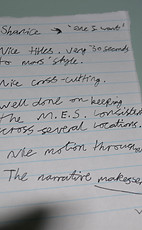 Shanice → "One I want"
Nice titles, very '30 seconds
to mars' style.
Nice cross-cutting.
Well done on keeping
the M.E.S. consistent
across several locations.
Nice motion through
The narrative makes